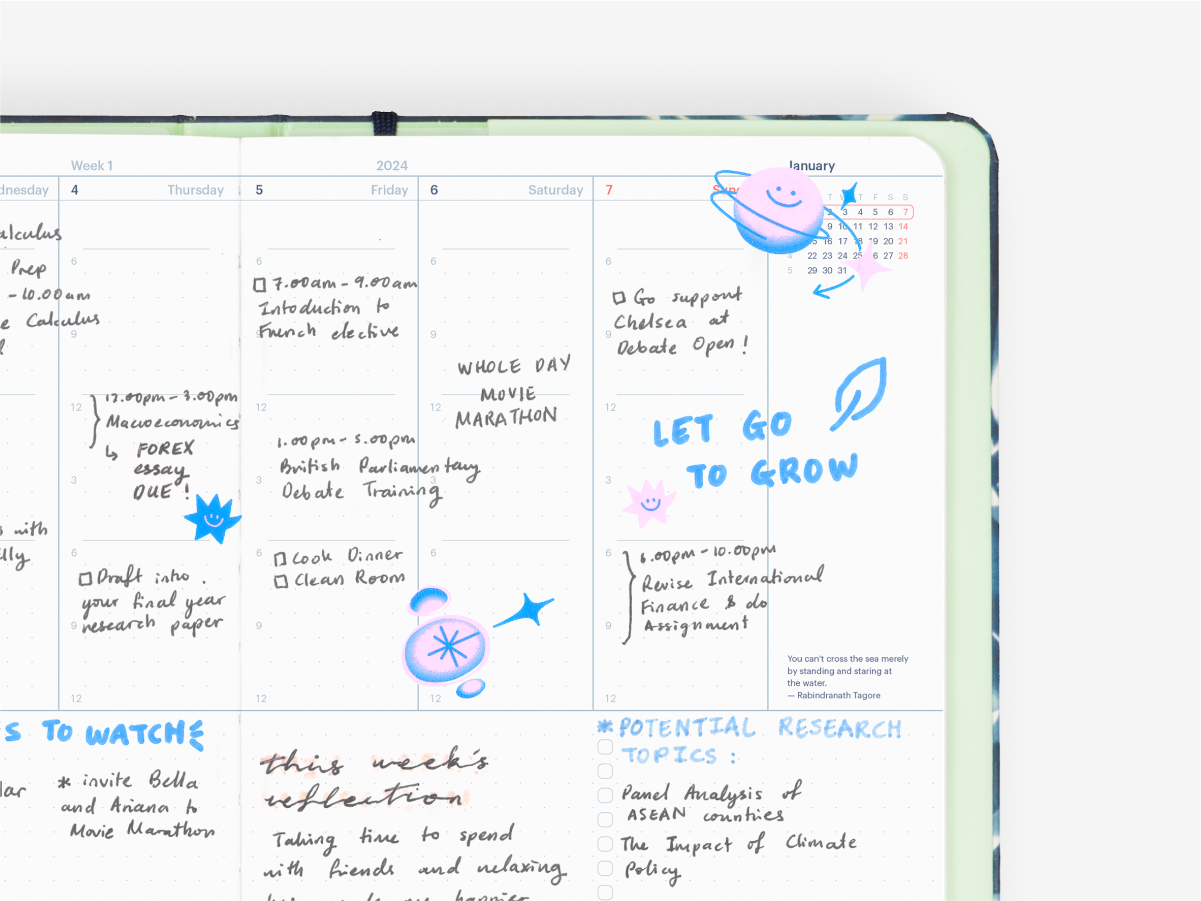 Week 1
2024
January
dnesday
4 Thursday
5 Friday
6 Saturday
7
T F S S
2 3 4 5 6 7
9 10 11 12 13 14
15 16 17 18 19 20 21
22 23 24 25 26 27 28
5 29 30 31
alculus
Prep
- 10.00am
e Calculus
s with
lly
6
9
12
12.00pm - 3.00pm
Macroeconomics
↳ FOREX
essay
DUE !
3
6
☐ Draft into .
your final year
research paper
9
12
☐ 7.00am - 9.00am
Intoduction to
French elective
9
1.00pm - 5.00pm
British Parliamentary
Debate Training
3
6
☐ Cook Dinner
☐ Clean Room
9
12
6
9
WHOLE DAY
MOVIE
12
MARATHON
3
6
9
12
6
☐ Go support
Chelsea at
9
Debate Open !
12
LET GO
TO GROW
3
6
6.00pm - 10.00pm
Revise International
Finance & do
9
Assignment
12
You can't cross the sea merely
by standing and staring at
the water.
— Rabindranath Tagore
S TO WATCH
lar
* invite Bella
and Ariana to
Movie Marathon
this week's
reflection
Taking time to spend
with friends and relaxing
*POTENTIAL RESEARCH
TOPICS :
Panel Analysis of
ASEAN countries
The Impact of Climate
Policy